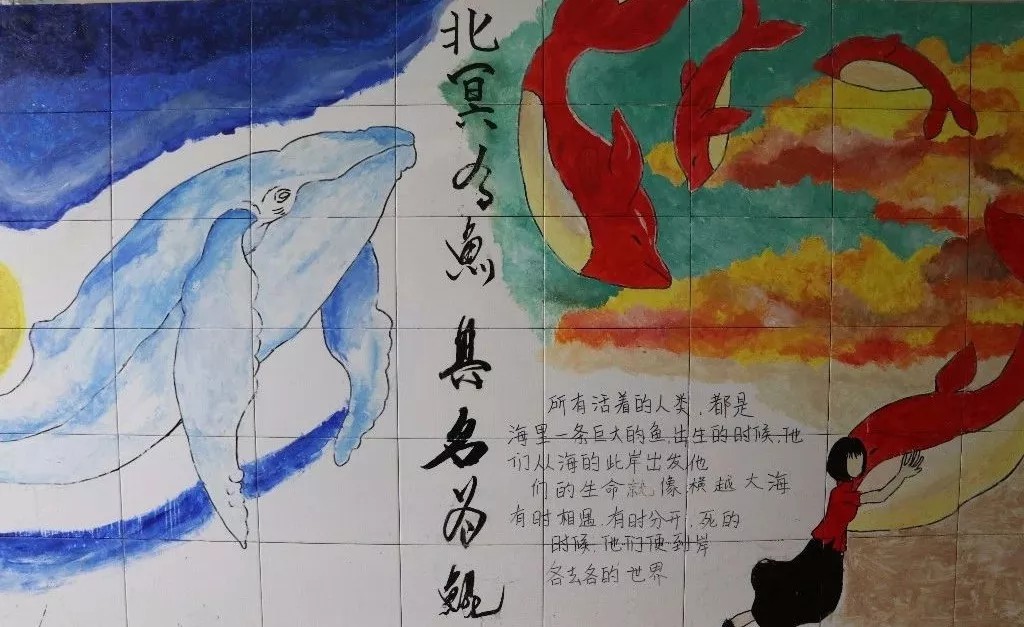 北冥有魚其名为鲲
所有活着的人类，都是
海里一条巨大的鱼，出生的时候，他
们从海的此岸出发他
们的生命就像横越大海
有时相遇，有时分开，死的
时候，他们便到岸
各去各的世界